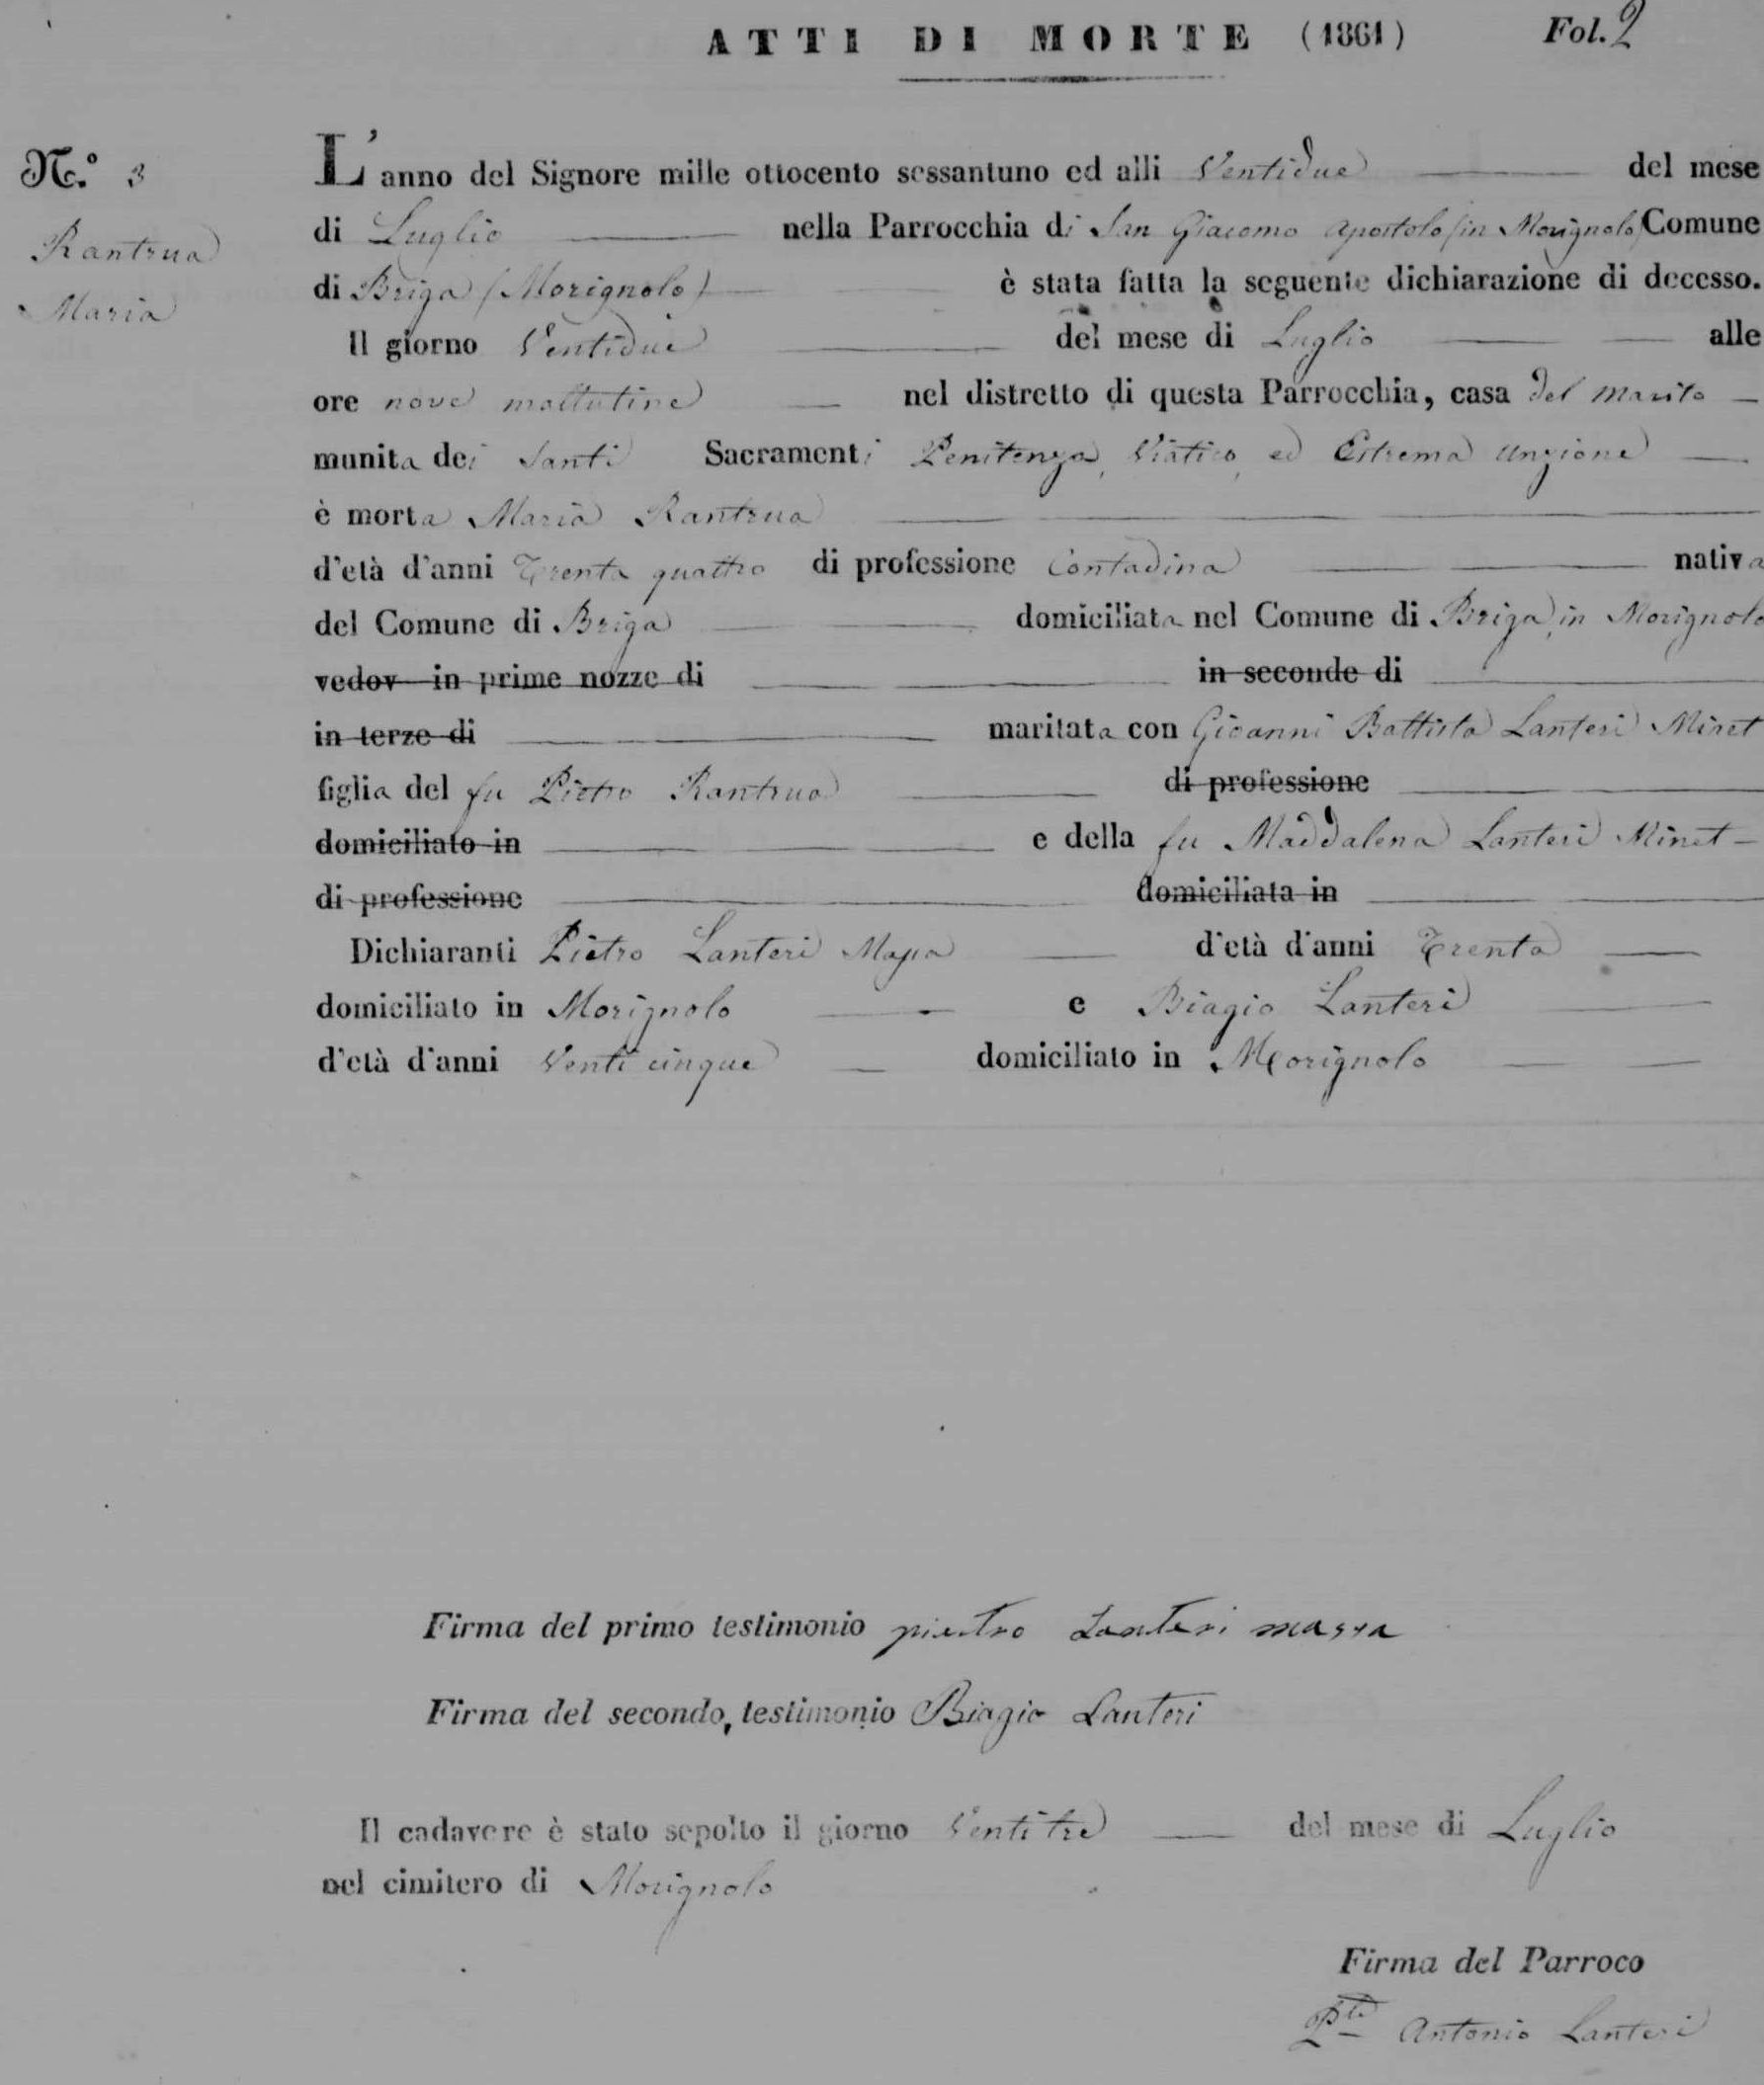 ATTI DI MORTE (1861) Fol. 2
N.° 3
Rantrua
Maria
L'anno del Signore mille ottocento sessantuno ed alli Ventidue del mese
di Luglio nella Parrocchia di San Giacomo apostolo (in Morignolo) Comune
di Briga (Morignolo) è stata fatta la seguente dichiarazione di decesso.
Il giorno Ventidue del mese di Luglio alle
ore nove mattutine nel distretto di questa Parrocchia, casa del marito
munita dei Santi Sacramenti Penitenza, Viatico, ed Estrema Unzione
è morta Maria Rantrua
d'età d'anni Trenta quattro di professione Contadina nativa
del Comune di Briga domiciliata nel Comune di Briga, in Morignolo
vedov in prime nozze di in seconde di
in terze di maritata con Gioanni Battista Lanteri Minet
figlia del fu Pietro Rantrua di professione
domiciliato in e della fu Maddalena Lanteri Minet
di professione domiciliata in
Dichiaranti Pietro Lanteri Massa d'età d'anni Trenta
domiciliato in Morignolo e Biagio Lanteri
d'età d'anni Venti cinque domiciliato in Morignolo
Firma del primo testimonio pietro Lanteri massa
Firma del secondo, testimonio Biagio Lanteri
Il cadavere è stato sepolto il giorno Ventitre del mese di Luglio
nel cimitero di Morignolo
Firma del Parroco
Pte Antonio Lanteri